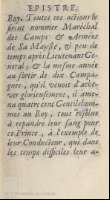 EPISTRE,
Roy. Toutes ces actions le
firent nommer Mareschal
des Camps & Armées
de Sa Majesté, & peu de
temps après Lieutenant Ge-
neral; & le mesme année
au sortir de dix Campa-
gnes, qu'il venoit d'ache-
ver glorieusement, il ame-
na quatre cens Gentilshom-
mes au Roy, tous resolus
à répandre leur sang pour
ce Prince, à l'exemple de
leur Conducteur, qui dans
les temps difficiles leur a-